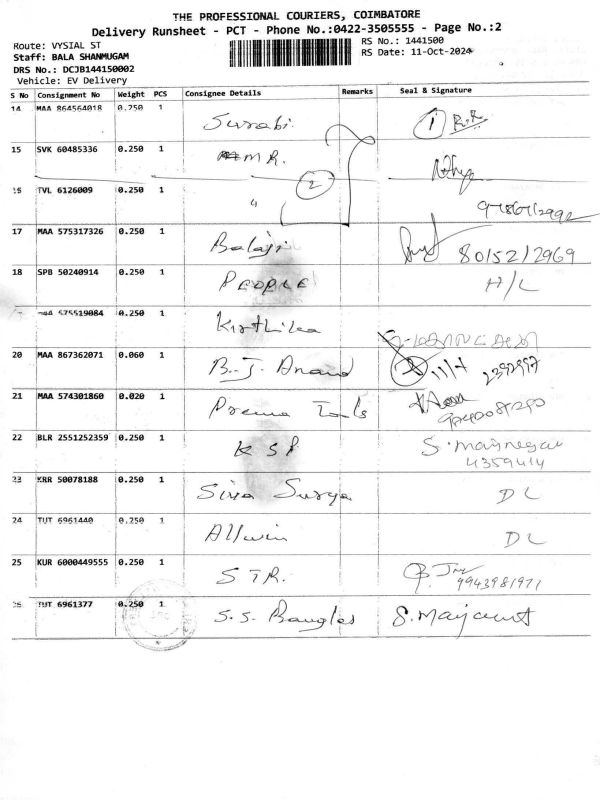 THE PROFESSIONAL COURIERS, COIMBATORE
Delivery Runsheet - PCT - Phone No.:0422-3505555 - Page No.:2
Route: VYSIAL ST
RS No.: 1441500
Staff: BALA SHANMUGAM
RS Date: 11-Oct-2024
DRS No.: DCJB144150002
Vehicle: EV Delivery
S No Consignment No Weight PCS Consignee Details Remarks Seal & Signature
14 MAA 864564018 0.250 1 Surabi 1
15 SVK 60485336 0.250 1 M R.
2
16 TVL 6126009 0.250 1 "
17 MAA 575317326 0.250 1 Balaji 8015212969
18 SPB 50240914 0.250 1 PEOPLE H/L
MAA 575519084 0.250 1 Kirthika
20 MAA 867362071 0.060 1 B.J. Anand 2392997
21 MAA 574301860 0.020 1 Prema Tools
22 BLR 2551252359 0.250 1 K S P. 4359414
23 KRR 50078188 0.250 1 Siva Surya D L
24 TUT 6961440 0.250 1 Allwin D L
25 KUR 6000449555 0.250 1 S T R. 9943981971
26 TUT 6961377 0.250 1 S. S. Bangles